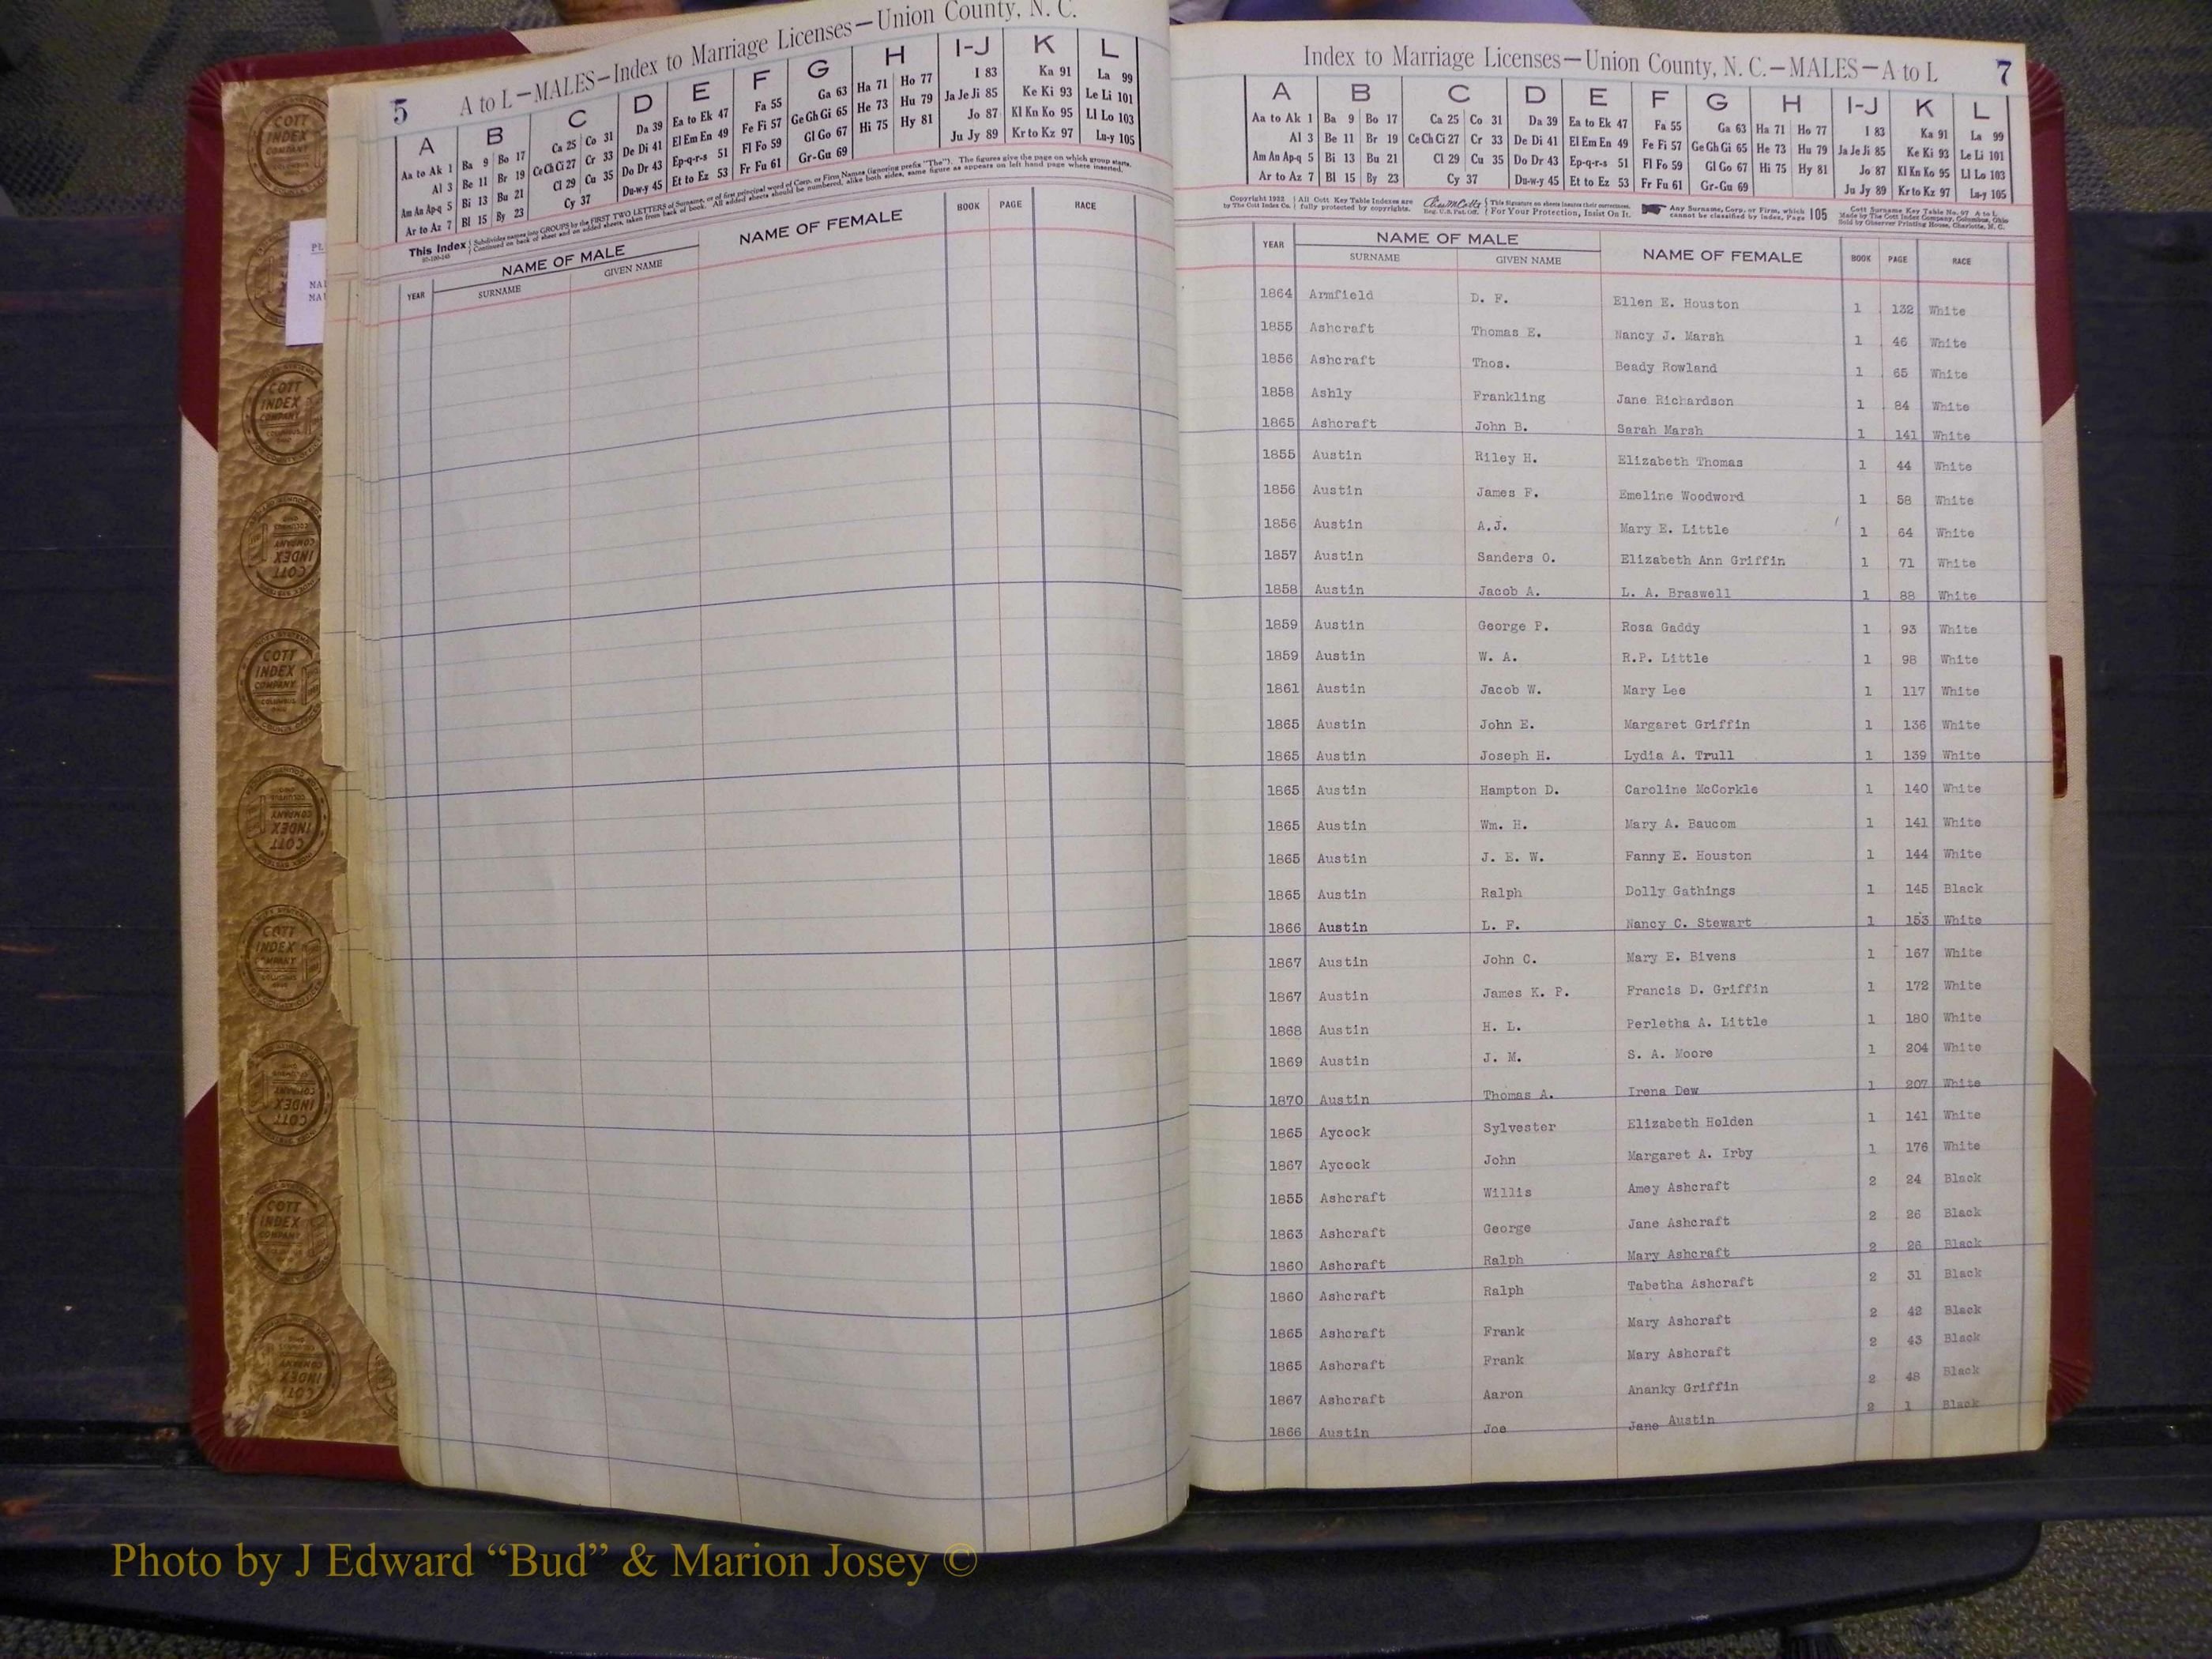 5 A to L—MALES—Index to Marriage Licenses—Union County, N. C.
A B C D E F G H I-J K L
Aa to Ak 1 Ba 9 Bo 17 Ca 25 Co 31 Da 39 Ea to Ek 47 Fa 55 Ga 63 Ha 71 Ho 77 I 83 Ka 91 La 99
Al 3 Be 11 Br 19 Ce Ch Ci 27 Cr 33 De Di 41 El Em En 49 Fe Fi 57 Ge Gh Gi 65 He 73 Hu 79 Ja Je Ji 85 Ke Ki 93 Le Li 101
Am An Ap-q 5 Bi 13 Bu 21 Cl 29 Cu 35 Do Dr 43 Ep-q-r-s 51 Fl Fo 59 Gl Go 67 Hi 75 Hy 81 Jo 87 Kl Kn Ko 95 Ll Lo 103
Ar to Az 7 Bl 15 By 23 Cy 37 Du-w-y 45 Et to Ez 53 Fr Fu 61 Gr-Gu 69 Ju Jy 89 Kr to Kz 97 Lu-y 105
This Index Subdivides names into GROUPS by the FIRST TWO LETTERS of Surname, or of first principal word of Corp. or Firm Names (ignoring prefix "The"). The figures give the page on which group starts.
Continued on back of sheet and on added sheets, taken from back of book. All added sheets should be numbered, alike both sides, same figure as appears on left hand page where inserted.
YEAR NAME OF MALE NAME OF FEMALE BOOK PAGE RACE
SURNAME GIVEN NAME
Index to Marriage Licenses—Union County, N. C.—MALES—A to L 7
A B C D E F G H I-J K L
Aa to Ak 1 Ba 9 Bo 17 Ca 25 Co 31 Da 39 Ea to Ek 47 Fa 55 Ga 63 Ha 71 Ho 77 I 83 Ka 91 La 99
Al 3 Be 11 Br 19 Ce Ch Ci 27 Cr 33 De Di 41 El Em En 49 Fe Fi 57 Ge Gh Gi 65 He 73 Hu 79 Ja Je Ji 85 Ke Ki 93 Le Li 101
Am An Ap-q 5 Bi 13 Bu 21 Cl 29 Cu 35 Do Dr 43 Ep-q-r-s 51 Fl Fo 59 Gl Go 67 Hi 75 Hy 81 Jo 87 Kl Kn Ko 95 Ll Lo 103
Ar to Az 7 Bl 15 By 23 Cy 37 Du-w-y 45 Et to Ez 53 Fr Fu 61 Gr-Gu 69 Ju Jy 89 Kr to Kz 97 Lu-y 105
Copyright 1922 All Cott Key Table Indexes are This Signature on sheets insures their correctness. Any Surname, Corp. or Firm, which 105 Cott Surname Key Table No. 97 A to L
by The Cott Index Co. fully protected by copyrights. Reg. U.S. Pat. Off. For Your Protection, Insist On It. cannot be classified by index, Page Made by The Cott Index Company, Columbus, Ohio
Sold by Observer Printing House, Charlotte, N. C.
YEAR NAME OF MALE NAME OF FEMALE BOOK PAGE RACE
SURNAME GIVEN NAME
1864 Armfield D. F. Ellen E. Houston 1 132 White
1855 Ashcraft Thomas E. Nancy J. Marsh 1 46 White
1856 Ashcraft Thos. Beady Rowland 1 65 White
1858 Ashly Frankling Jane Richardson 1 84 White
1865 Ashcraft John B. Sarah Marsh 1 141 White
1855 Austin Riley H. Elizabeth Thomas 1 44 White
1856 Austin James F. Emeline Woodword 1 58 White
1856 Austin A.J. Mary E. Little 1 64 White
1857 Austin Sanders O. Elizabeth Ann Griffin 1 71 White
1858 Austin Jacob A. L. A. Braswell 1 88 White
1859 Austin George P. Rosa Gaddy 1 93 White
1859 Austin W. A. R.P. Little 1 98 White
1861 Austin Jacob W. Mary Lee 1 117 White
1865 Austin John E. Margaret Griffin 1 136 White
1865 Austin Joseph H. Lydia A. Trull 1 139 White
1865 Austin Hampton D. Caroline McCorkle 1 140 White
1865 Austin Wm. H. Mary A. Baucom 1 141 White
1865 Austin J. E. W. Fanny E. Houston 1 144 White
1865 Austin Ralph Dolly Gathings 1 145 Black
1866 Austin L. F. Nancy C. Stewart 1 153 White
1867 Austin John C. Mary E. Bivens 1 167 White
1867 Austin James K. P. Francis D. Griffin 1 172 White
1868 Austin H. L. Perletha A. Little 1 180 White
1869 Austin J. M. S. A. Moore 1 204 White
1870 Austin Thomas A. Irena Dew 1 207 White
1865 Aycock Sylvester Elizabeth Helden 1 141 White
1867 Aycock John Margaret A. Irby 1 176 White
1855 Ashcraft Willis Amey Ashcraft 2 24 Black
1863 Ashcraft George Jane Ashcraft 2 26 Black
1860 Ashcraft Ralph Mary Ashcraft 2 26 Black
1860 Ashcraft Ralph Tabetha Ashcraft 2 31 Black
1865 Ashcraft Frank Mary Ashcraft 2 42 Black
1865 Ashcraft Frank Mary Ashcraft 2 43 Black
1867 Ashcraft Aaron Ananky Griffin 2 48 Black
1866 Austin Joe Jane Austin 2 1 Black
COTT INDEX COMPANY
Photo by J Edward “Bud” & Marion Josey ©